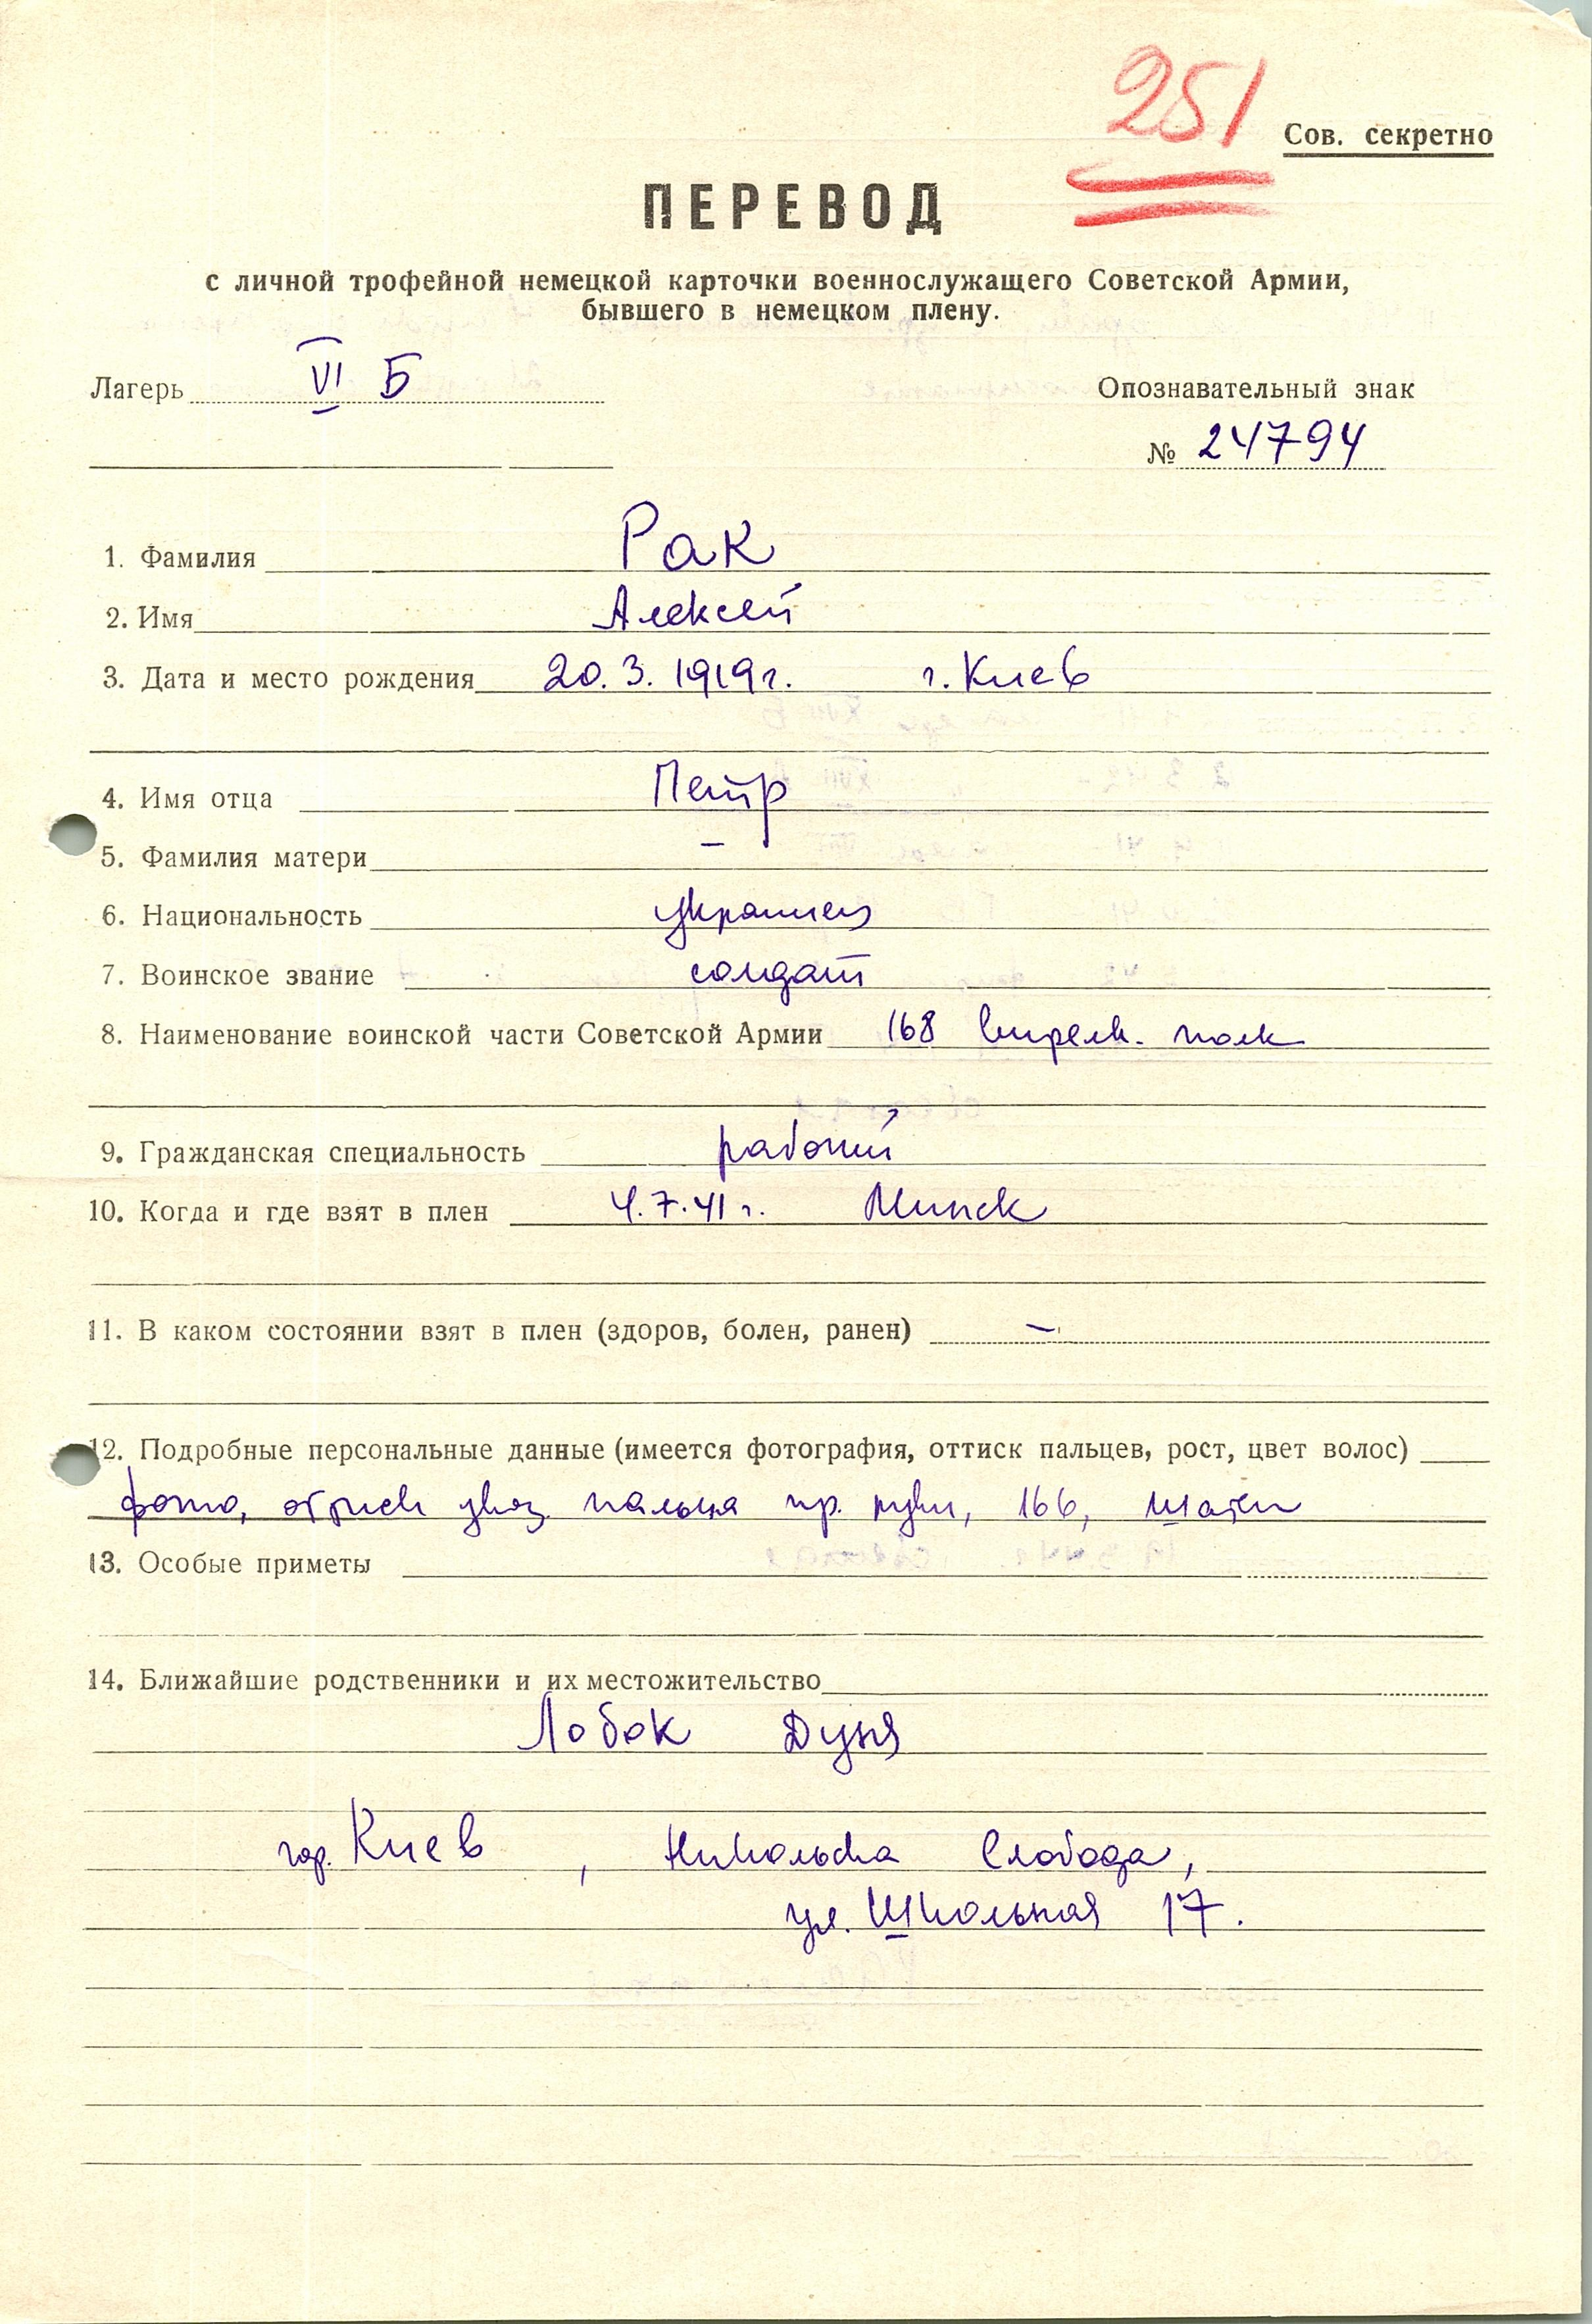 251
Сов. секретно
ПЕРЕВОД
с личной трофейной немецкой карточки военнослужащего Советской Армии,
бывшего в немецком плену.
Лагерь VI Б
Опознавательный знак
№ 24794
1. Фамилия Рак
2. Имя Алексей
3. Дата и место рождения 20.3.1919г. г. Киев
4. Имя отца Петр
5. Фамилия матери –
6. Национальность украинец
7. Воинское звание солдат
8. Наименование воинской части Советской Армии 168 стрелк. полк
9. Гражданская специальность рабочий
10. Когда и где взят в плен 4.7.41 г. Минск
11. В каком состоянии взят в плен (здоров, болен, ранен) –
12. Подробные персональные данные (имеется фотография, оттиск пальцев, рост, цвет волос)
фото, оттиск указ. пальца пр. руки, 166, шатен
13. Особые приметы
14. Ближайшие родственники и их местожительство
Лобок Дуня
гор. Киев, Никольска Слобода,
ул. Школьная 17.